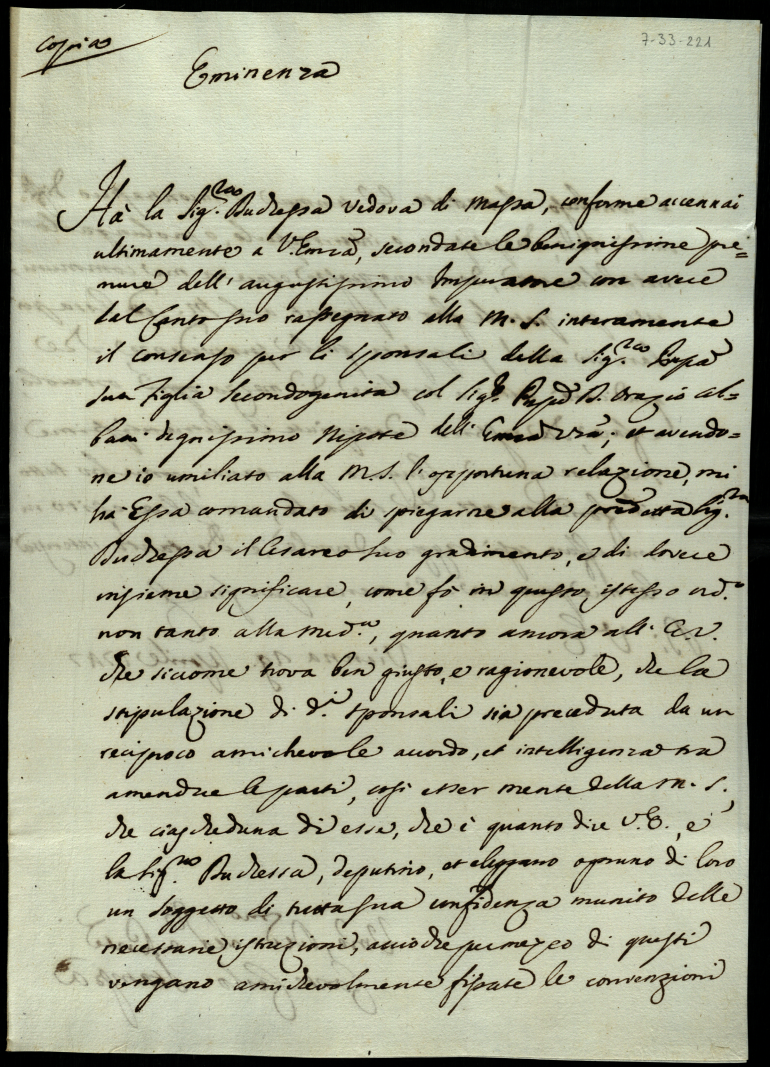 Copia
7-33-221
Eminenza
Hà la Sig.ra Duchessa Vedova di Massa, conforme accennai
ultimamente a V. Emza, secondate le benignissime pre=
mure dell' augustissimo Imperatore con avere
dal Canto suo rassegnato alla M. S. interamente
il consenso per li sponsali della Sig.ra Pnpa
sua figlia secondogenita col Sig.r Pnpe D. Orazio Al=
bani degnissimo Nipote dell' Emza Vra; et avendo=
ne io umiliato alla M. S. l' opportuna relazione, mi
hà Essa comandato di spiegarne alla predetta Sig.ra
Duchessa il Cesareo suo gradimento, e di dovere
insieme significare, come fò in questo istesso ord.o
non tanto alla med.a, quanto ancora all' E. V.
che siccome trova ben giusto, e ragionevole, che la
stipulazione di d.i sponsali sia preceduta da un
reciproco amichevole accordo, et intelligenza tra
amendue le parti, così esser mente della M. S.,
che ciascheduna di esse, che è quanto dire V. E., e
la Sig.ra Duchessa, deputino, et eleggano ognuno di loro
un soggetto di tutta sua confidenza munito delle
necessarie istruzioni, acciochè per mezzo di questi
vengano amichevolmente fissate le convenzioni